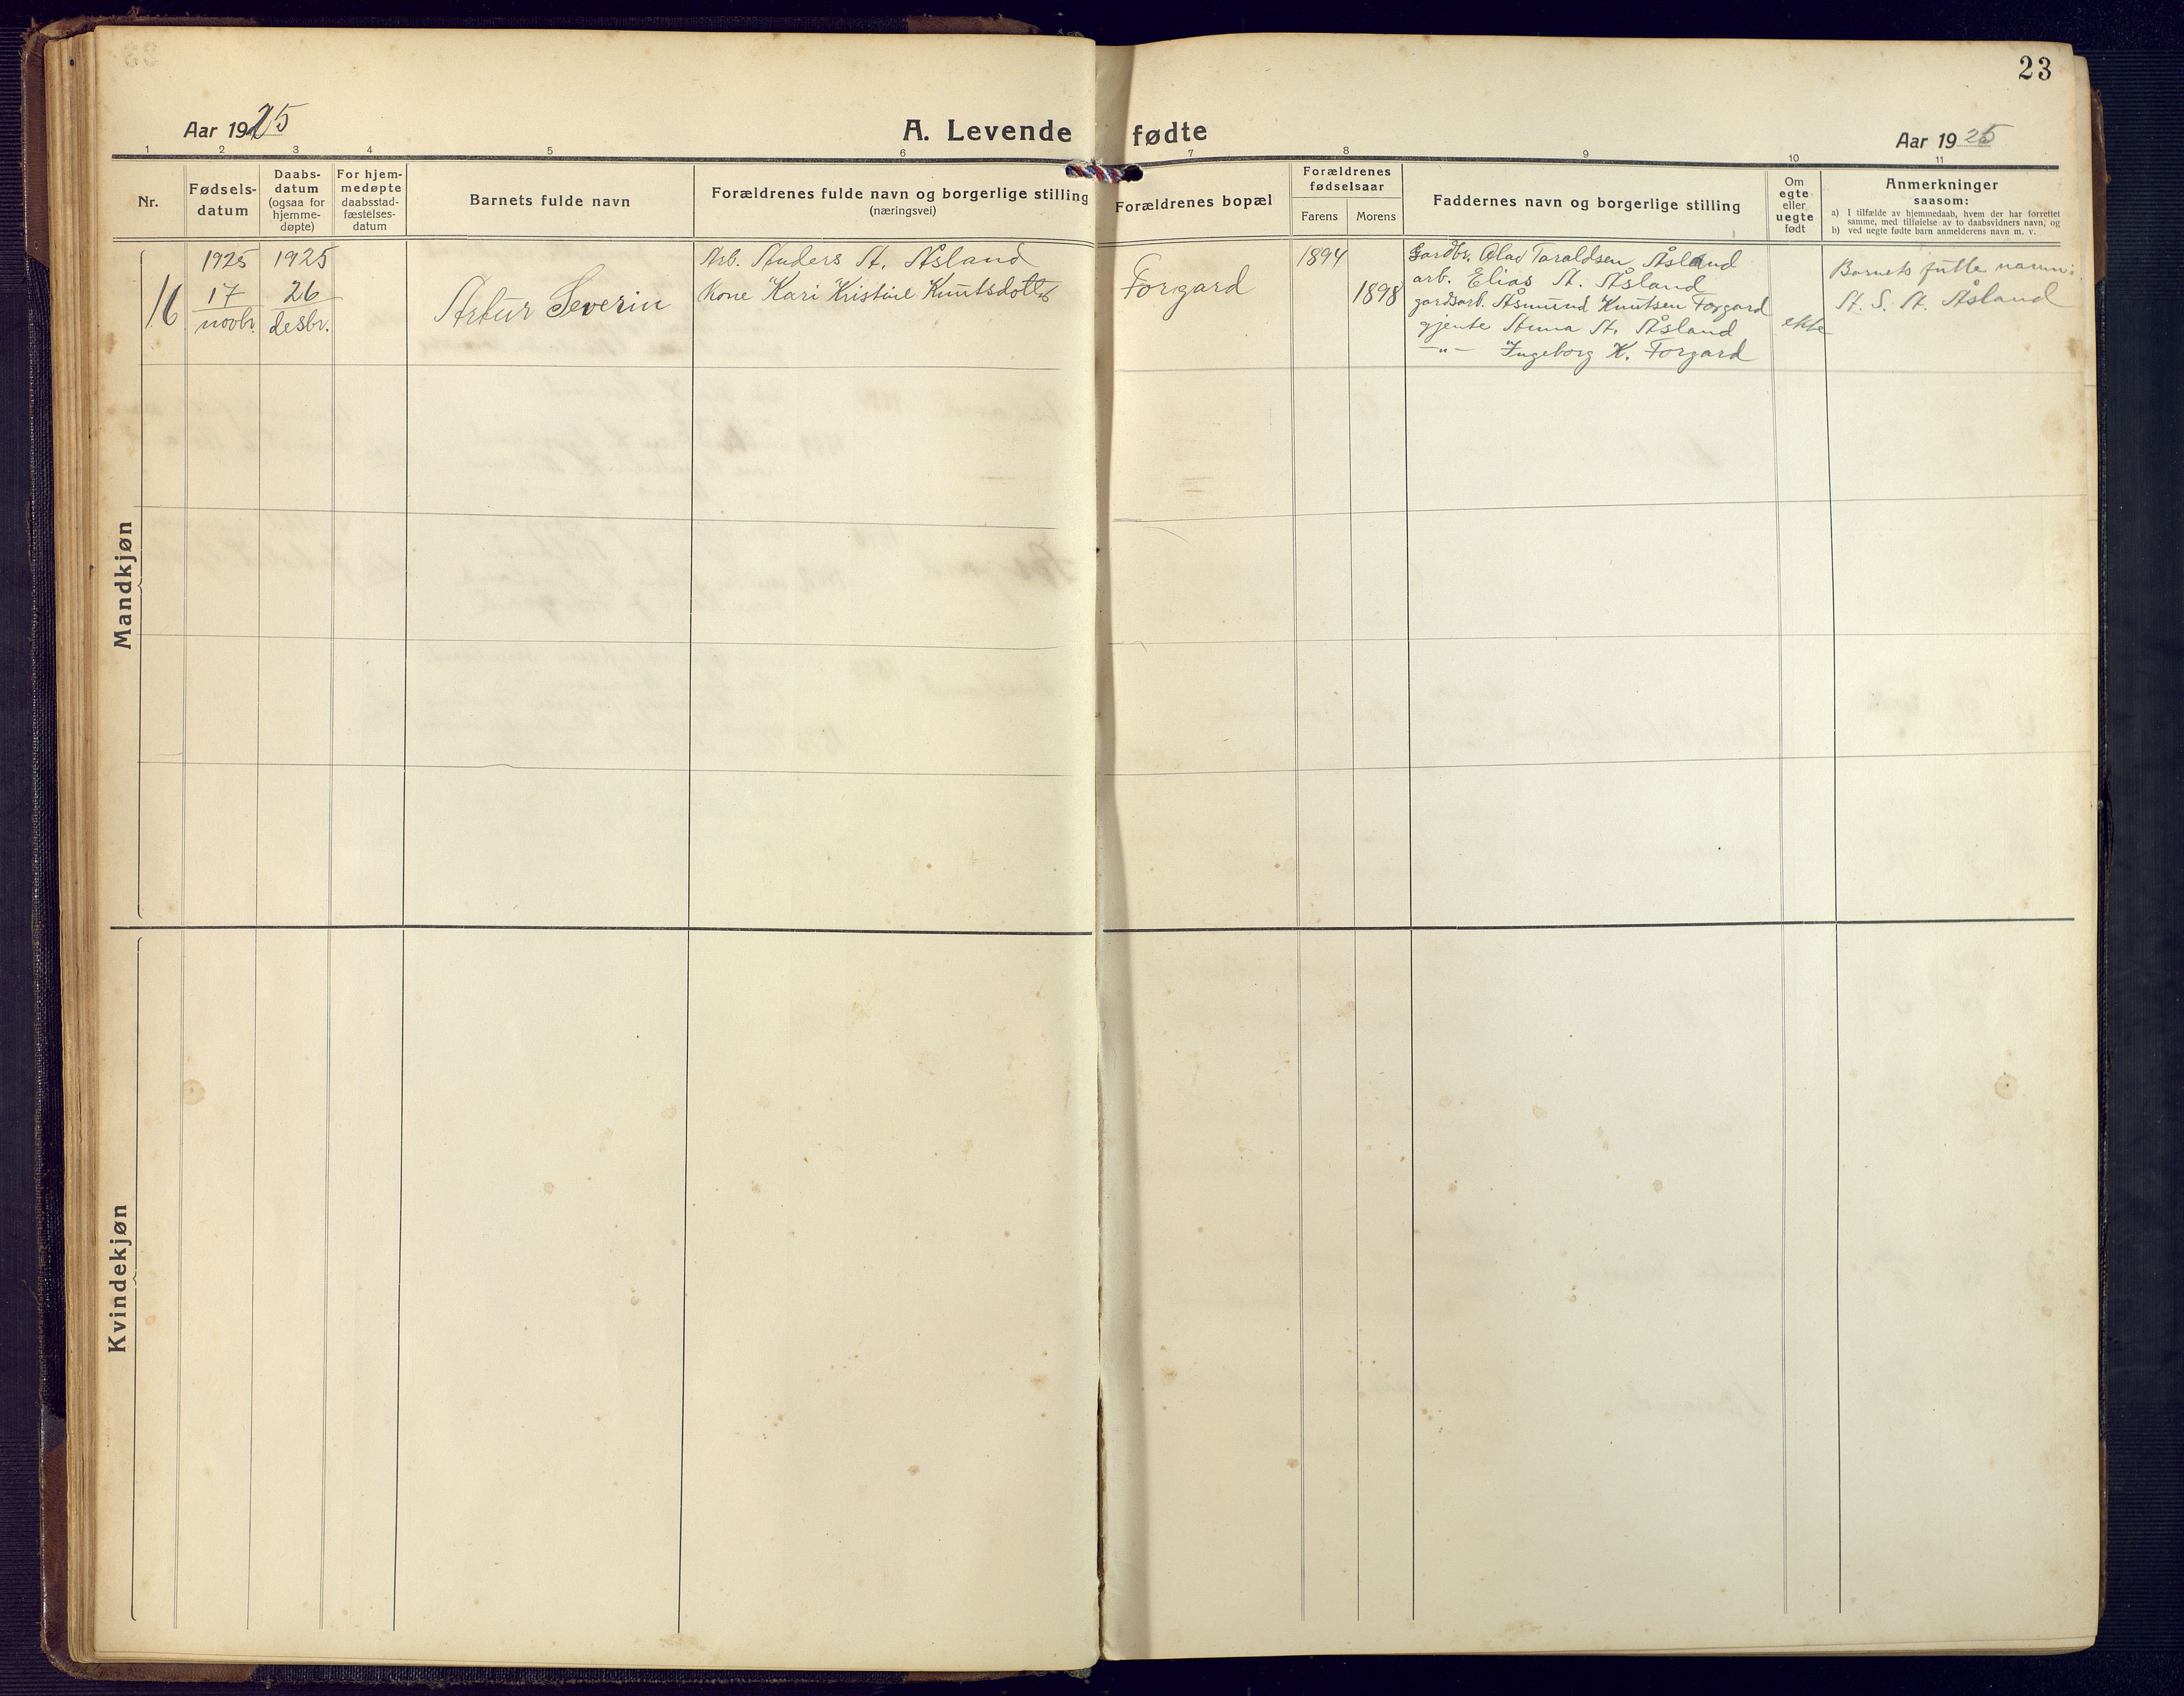 23
Aar 1925
A. Levende fødte
Aar 1925
1 2 3 4 5 6 7 8 9 10 11
Nr.
Fødsels-
datum
Daabs-
datum
(ogsaa for
hjemme-
døpte)
For hjem-
medøpte
daabsstad-
fæstelses-
datum
Barnets fulde navn
Forældrenes fulde navn og borgerlige stilling
(næringsvei)
Forældrenes bopæl
Forældrenes
fødselsaar
Farens Morens
Faddernes navn og borgerlige stilling
Om
egte
eller
uegte
født
Anmerkninger
saasom:
a) I tilfælde av hjemmedaab, hvem der har forrettet
samme, med tilføielse av to daabsvidners navn, og
b) ved uegte fødte barn anmelderens navn m. v.
Mandkjøn
16
1925
17
novbr.
1925
26
desbr.
Artur Severin
Arb. Anders A. Åsland
Kone Kari Kristine Knutsdotter
Forgard
1894
1898
Gardbr. Olav Taraldsen Åsland
arb. Elias A. Åsland
gardsarb. Åsmund Knutsen Forgard
gjente Anna A. Åsland
—"— Ingeborg K. Forgard
ekte
Barnets fulle namn:
A. S. A. Åsland
Kvindekjøn